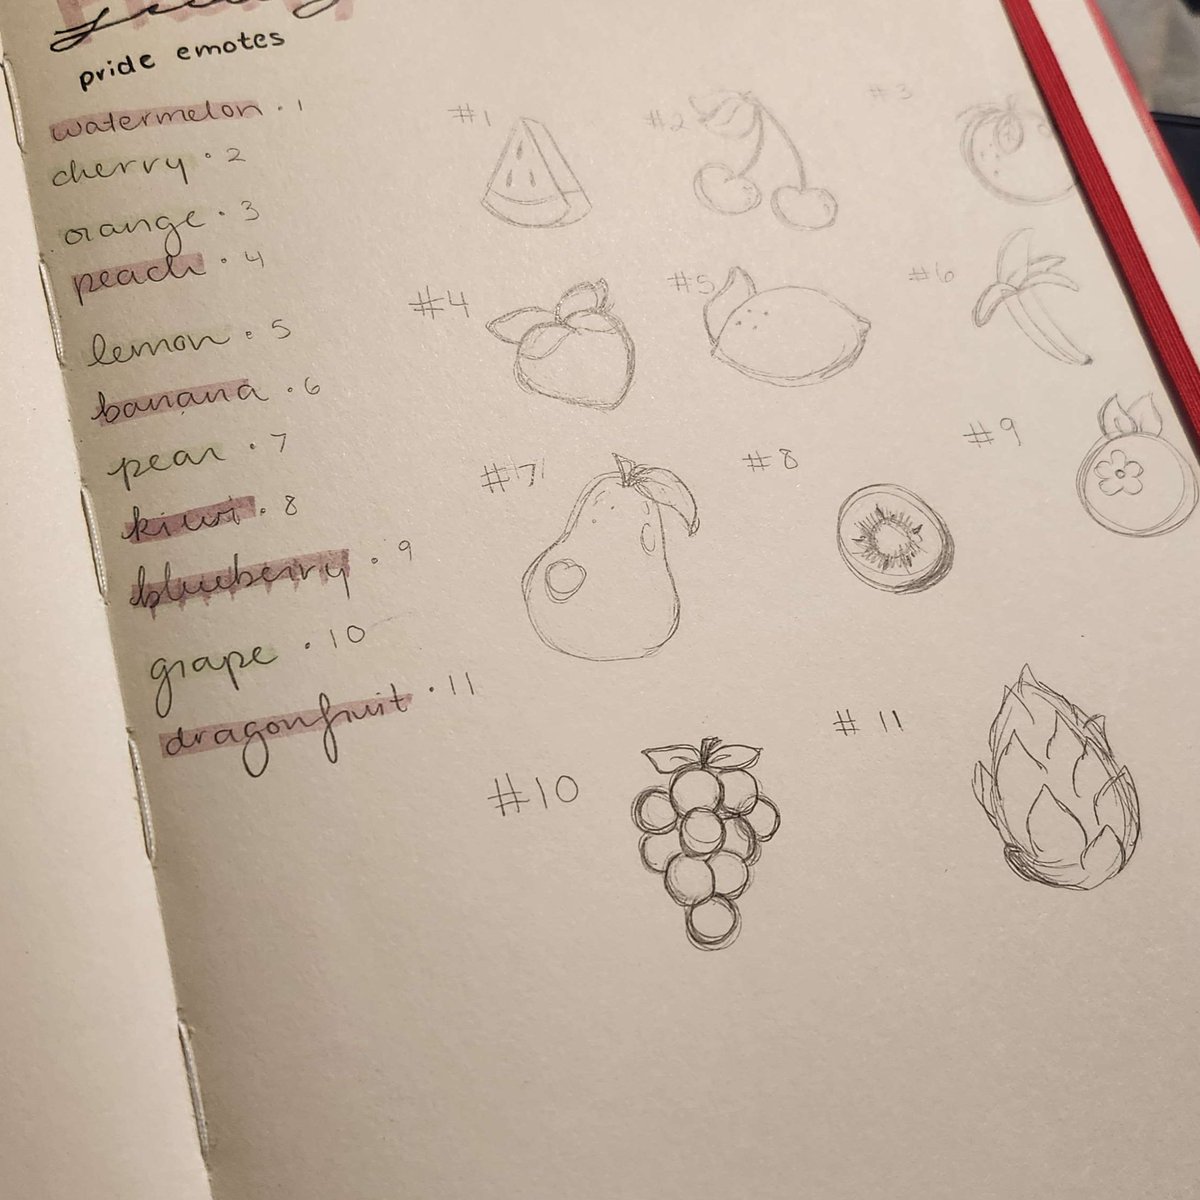 pride emotes
watermelon · 1
cherry · 2
orange · 3
peach · 4
lemon · 5
banana · 6
pear · 7
kiwi · 8
blueberry · 9
grape · 10
dragonfruit · 11
#1
#2
#3
#4
#5
#6
#7
#8
#9
#10
#11